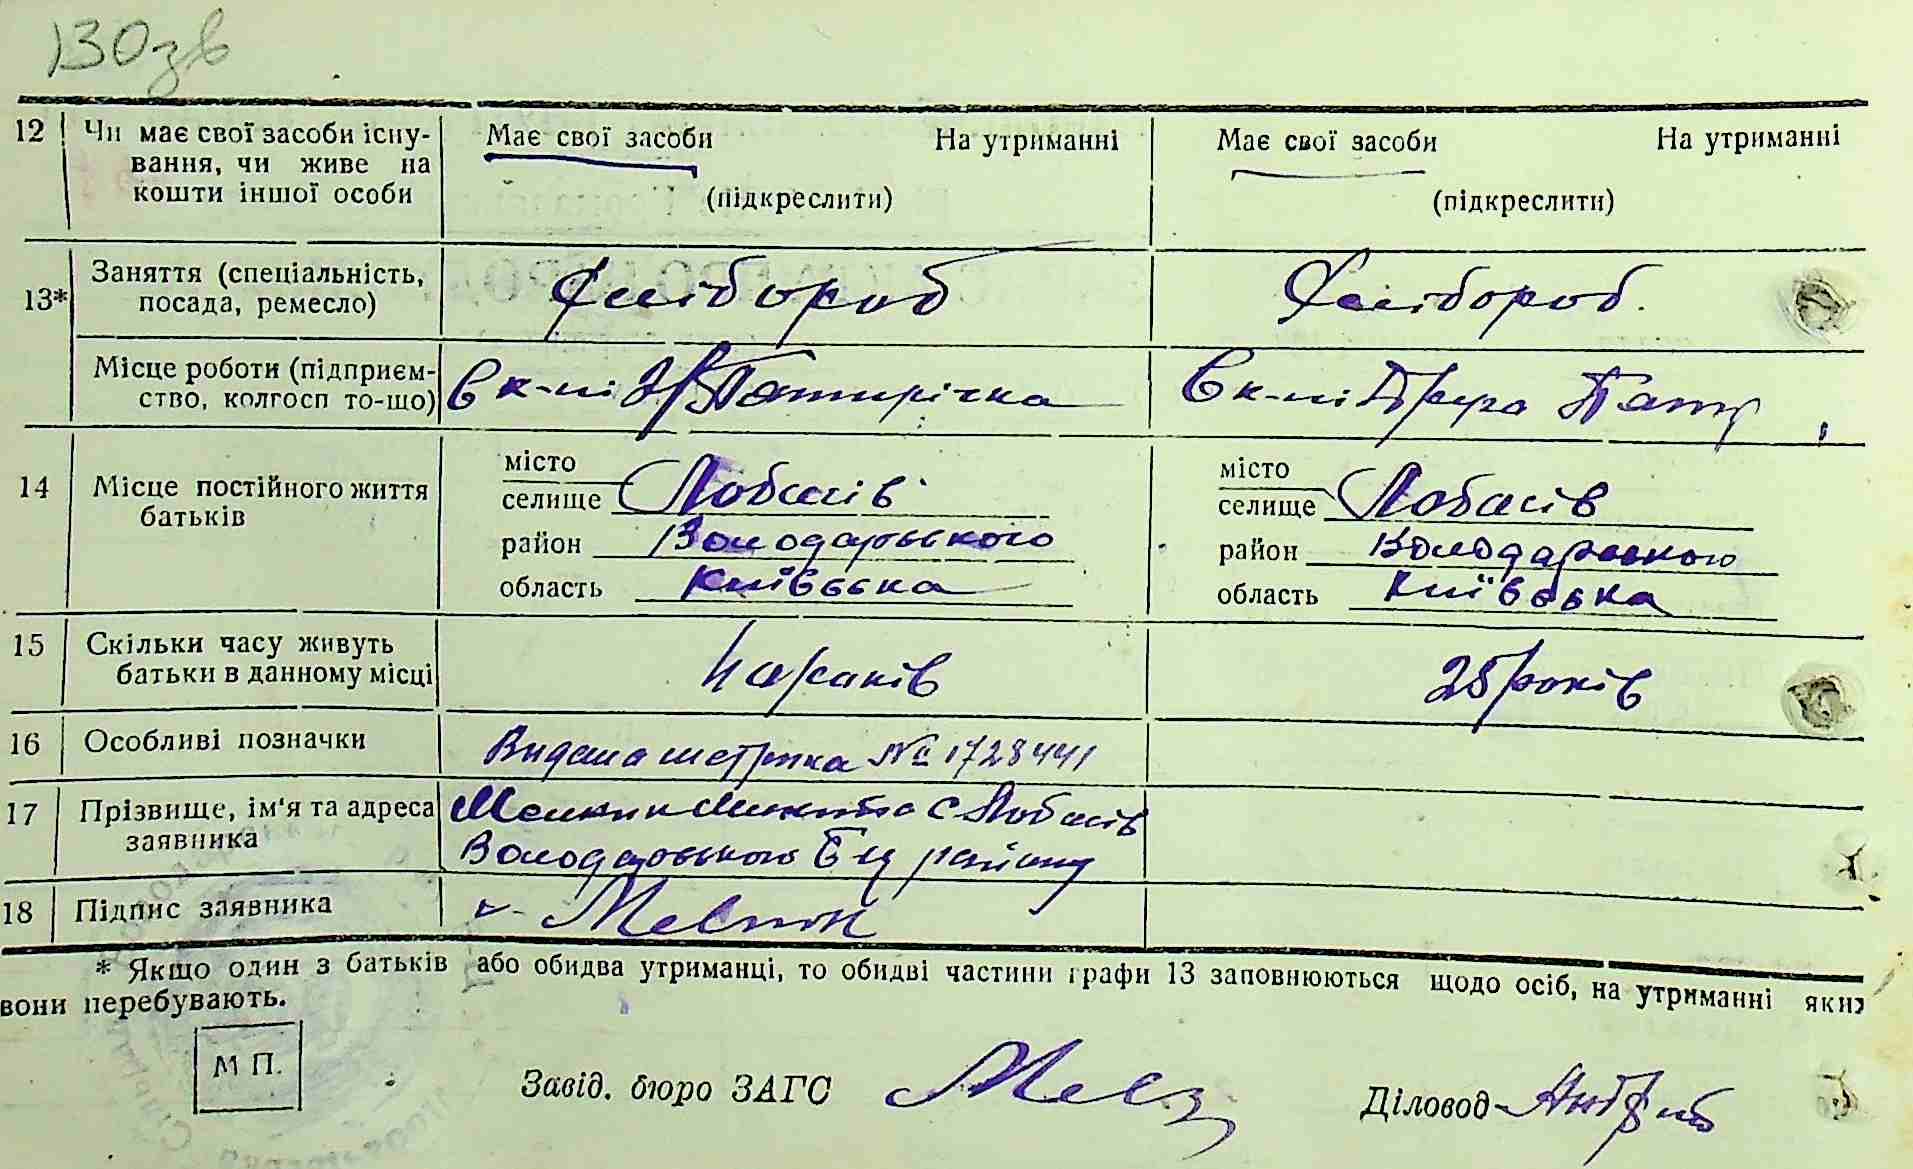 130зв
12 Чи має свої засоби існу- Має свої засоби На утриманні Має свої засоби На утриманні
вання, чи живе на
кошти іншої особи (підкреслити) (підкреслити)
13* Заняття (спеціальність, Хлібороб Хлібороб.
посада, ремесло)
Місце роботи (підприєм- В к-пі П'ятирічка В к-пі Друга
ство, колгосп то-що)
14 Місце постійного життя місто місто
батьків селище Лобачів селище Лобачів
район Володарського район Володарського
область Київська область Київська
15 Скільки часу живуть років 25 років
батьки в данному місці
16 Особливі позначки Видана метрика № 1728441
17 Прізвище, ім'я та адреса Микита с Лобачів
заявника Володарського району
18 Підпис заявника
* Якщо один з батьків або обидва утриманці, то обидві частини графи 13 заповнюються щодо осіб, на утриманні яких
вони перебувають.
М П.
Завід. бюро ЗАГС Діловод